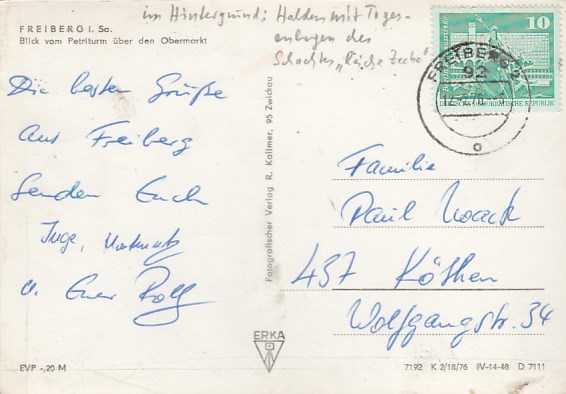 FREIBERG i. Sa.
Blick vom Petriturm über den Obermarkt
im Hintergrund: Halden mit Tages-
anlagen des
Schachtes „Reiche Zeche“
10
DEUTSCHE DEMOKRATISCHE REPUBLIK
FREIBERG 2
92
Die besten Grüße
aus Freiberg
senden Euch
Inge,
u. Euer Rolf
Fotografischer Verlag R. Kallmer, 95 Zwickau
Familie
Paul Noack
437 Köthen
Wolfgangstr. 34
ERKA
EVP -,20 M
7192 K 2/18/76 IV-14-48 D 7111